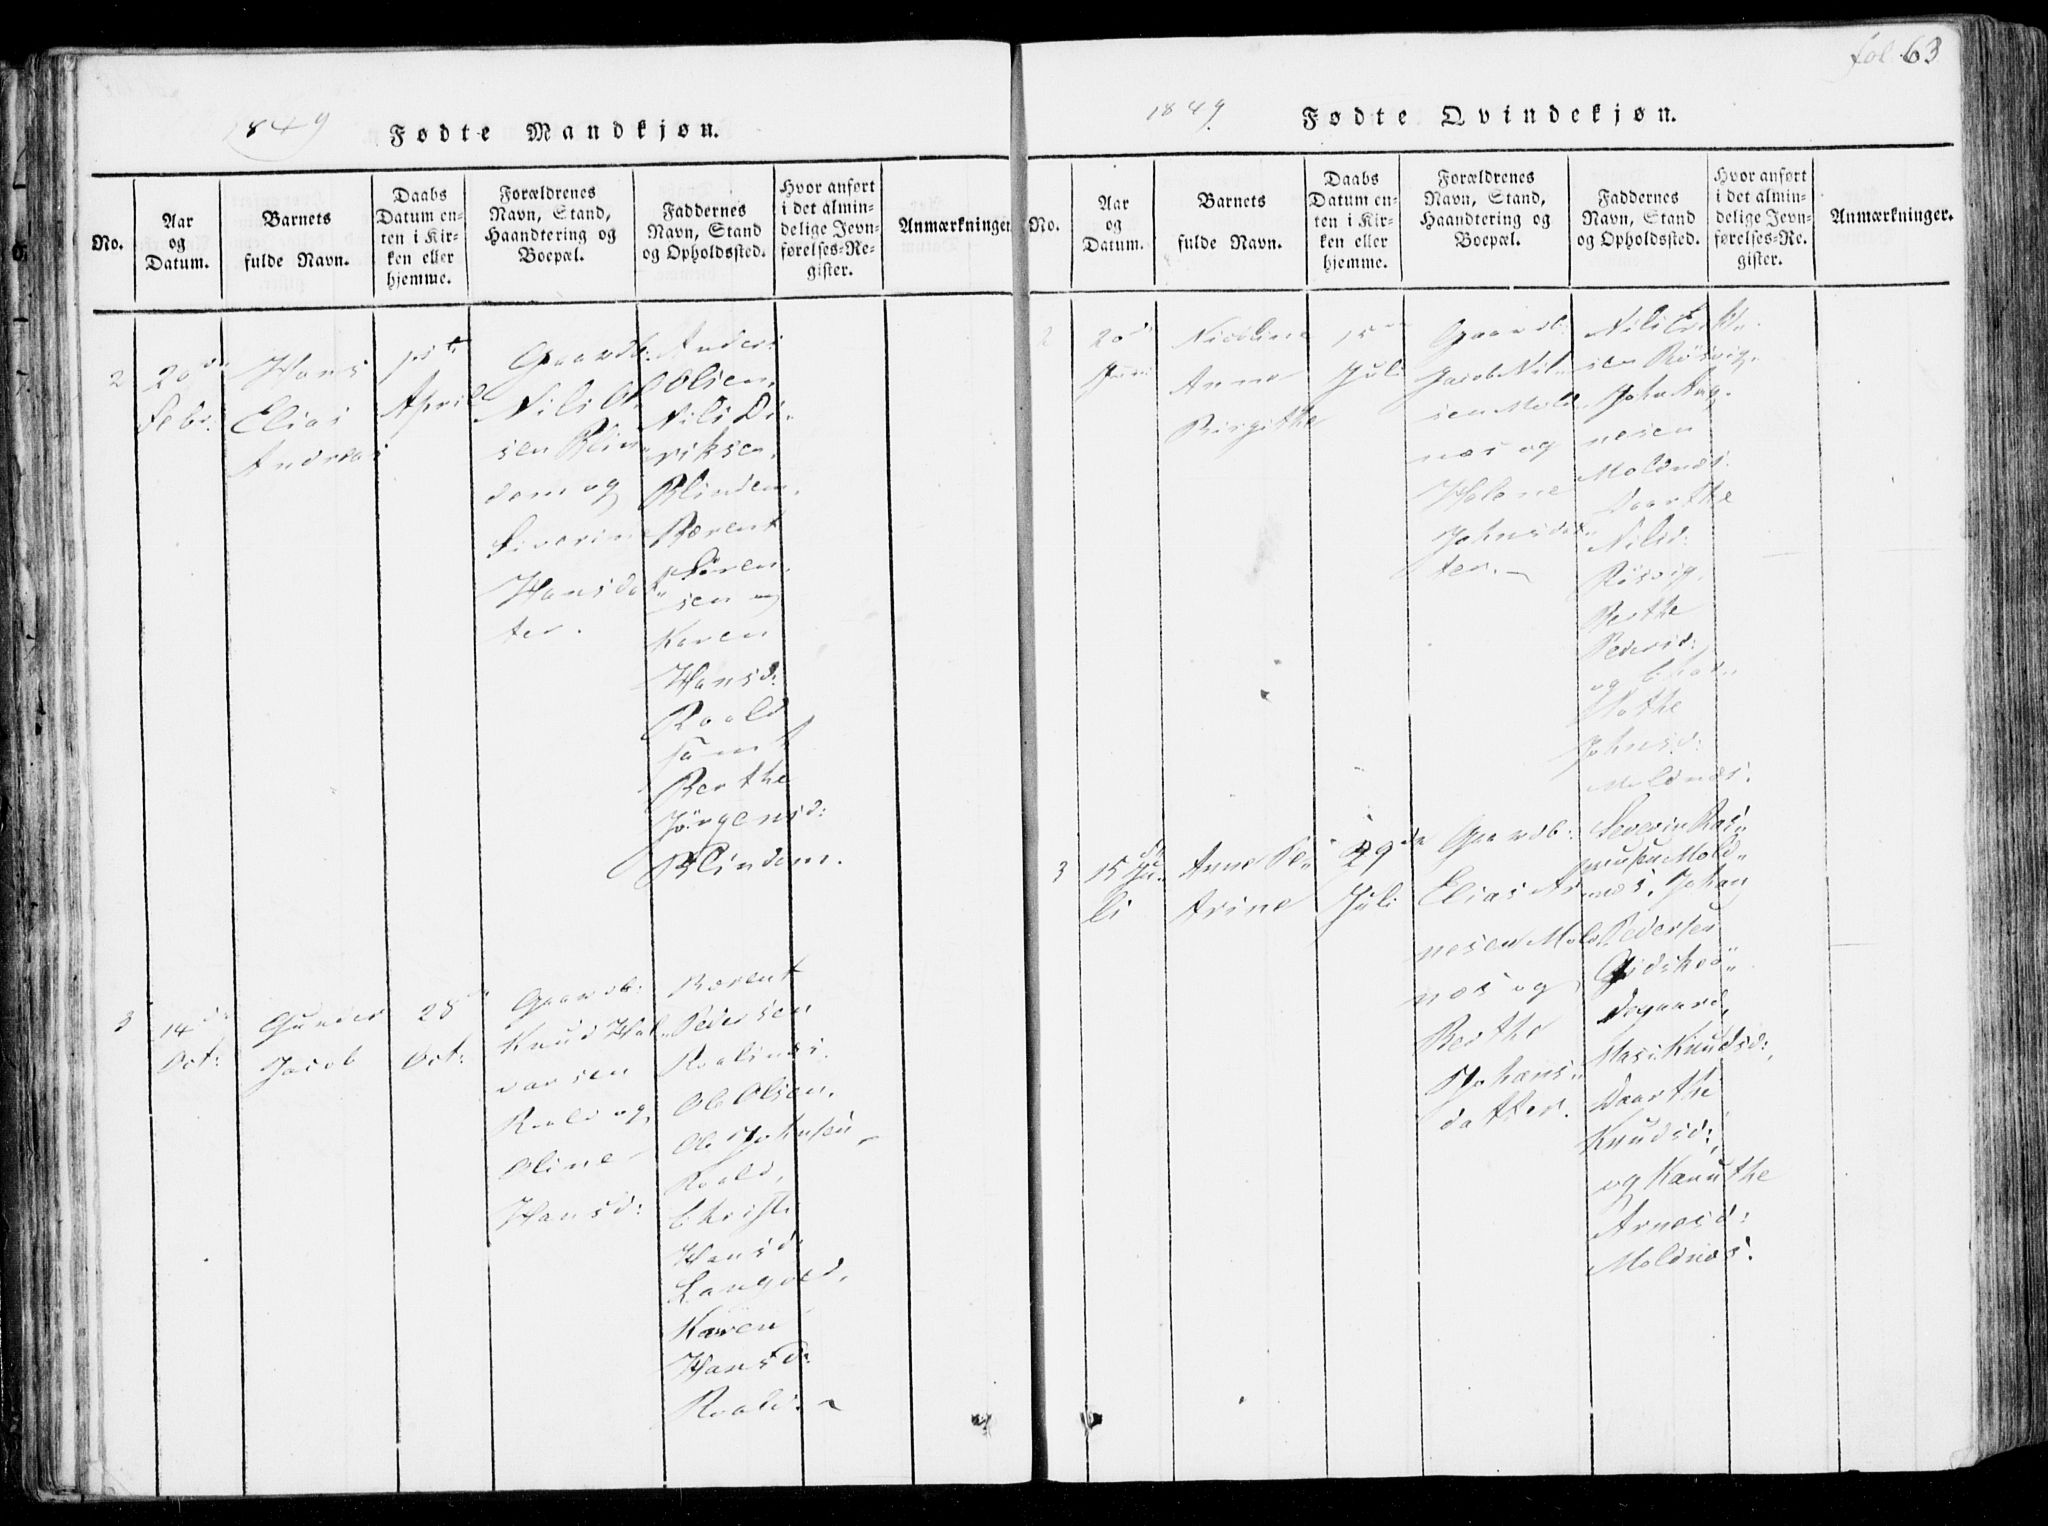 fol. 63
1849
Fødte Mandkjøn.
No.
Aar
og
Datum.
Barnets
fulde Navn.
Daabs
Datum en-
ten i Kir-
ken eller
hjemme.
Forældrenes
Navn, Stand,
Haandtering og
Boepæl.
Faddernes
Navn, Stand
og Opholdssted.
Hvor anført
i det almin-
delige Jevn-
førelses-Re-
gister.
Anmærkninger
2
20de
Febr:
Hans
Elias
Andreas
1ste
April
Gaardb:
Nils Ol-
sen Blin-
dem og
Siverine
Hansdat-
ter.
Anders
Olsen,
Nils Di-
riksen,
Blindem,
Bærent
Sören-
sen og
Karen
Hansd:
Roald
samt
Berthe
Jörgensd:
Blindem.
3
14de
Oct:
Gunder
Jacob
28de
Oct:
Gaardb:
Knud Hal-
varsen
Roald og
Oline
Hansd:
Bærent
Pedersen
Roalsnæs.
Ole Olsen,
Ole Johnsen,
Roald,
Christi
Hansd:
Langvold,
Karen
Hansd:
Roald.
1849.
Fødte Qvindekjøn.
No.
Aar
og
Datum.
Barnets
fulde Navn.
Daabs
Datum en-
ten i Kir-
ken eller
hjemme.
Forældrenes
Navn, Stand,
Haandtering og
Boepæl.
Faddernes
Navn, Stand
og Opholdssted.
Hvor anført
i det almin-
delige Jevn-
førelses-Re-
gister.
Anmærkninger.
2
20de
Juni
Nicoline
Anne
Birgithe
15de
Juli
Gaardb:
Jacob Nil-
sen Mold-
næs og
Helene
Johnsdat-
ter.
Nils Erik-
sen Rösvig,
John Ag-
nesen
Moldnæs.
Daarthe
Nilsd:
Rösvig,
Berthe
Pedersd:
og Char-
lothe
Johnsd:
Moldnæs.
3
15de Ju-
li
Anne Pe-
trine
29de
Juli
Gaardb:
Elias Ar-
nesen Mold-
næs og
Berthe
Johans-
datter.
Severin Ras-
musen Mold-
næs, Johan
Pedersen
Gidskeö-
degaard,
Masi Knudsd:,
Daarthe
Knudsd:,
og Kanuthe
Arnesd:
Moldnæs.